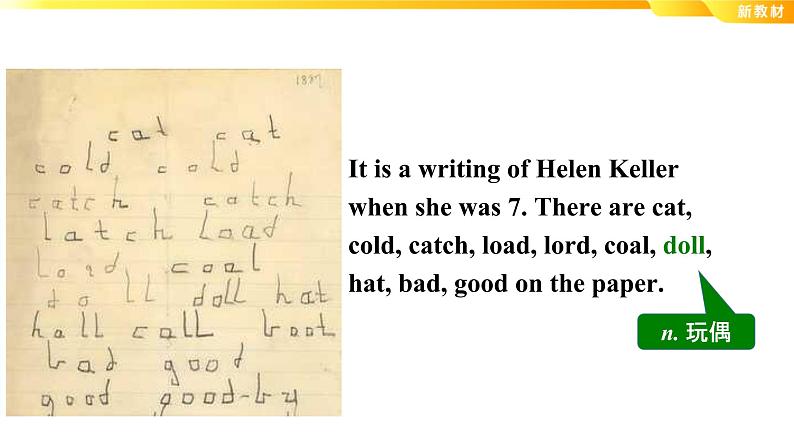 新教材
1887
cat cat
cold cold
catch catch
latch load
lord coal
doll doll hat
hall call boot
bad good
good good-by
It is a writing of Helen Keller
when she was 7. There are cat,
cold, catch, load, lord, coal, doll,
hat, bad, good on the paper.
n. 玩偶